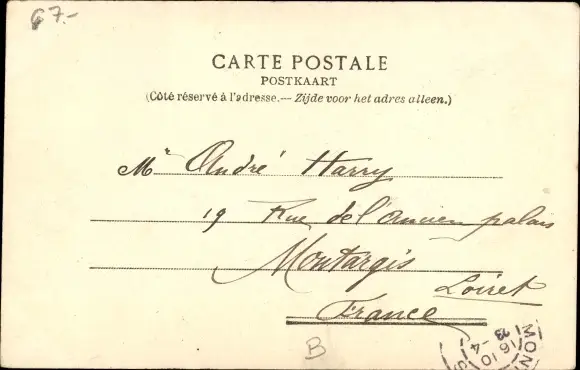 67.-
CARTE POSTALE
POSTKAART
(Côté réservé à l'adresse.— Zijde voor het adres alleen.)
Mr André Harry
19 Rue de l'ancien palais
Montargis
Loiret
France
B
MON
16 10
-4